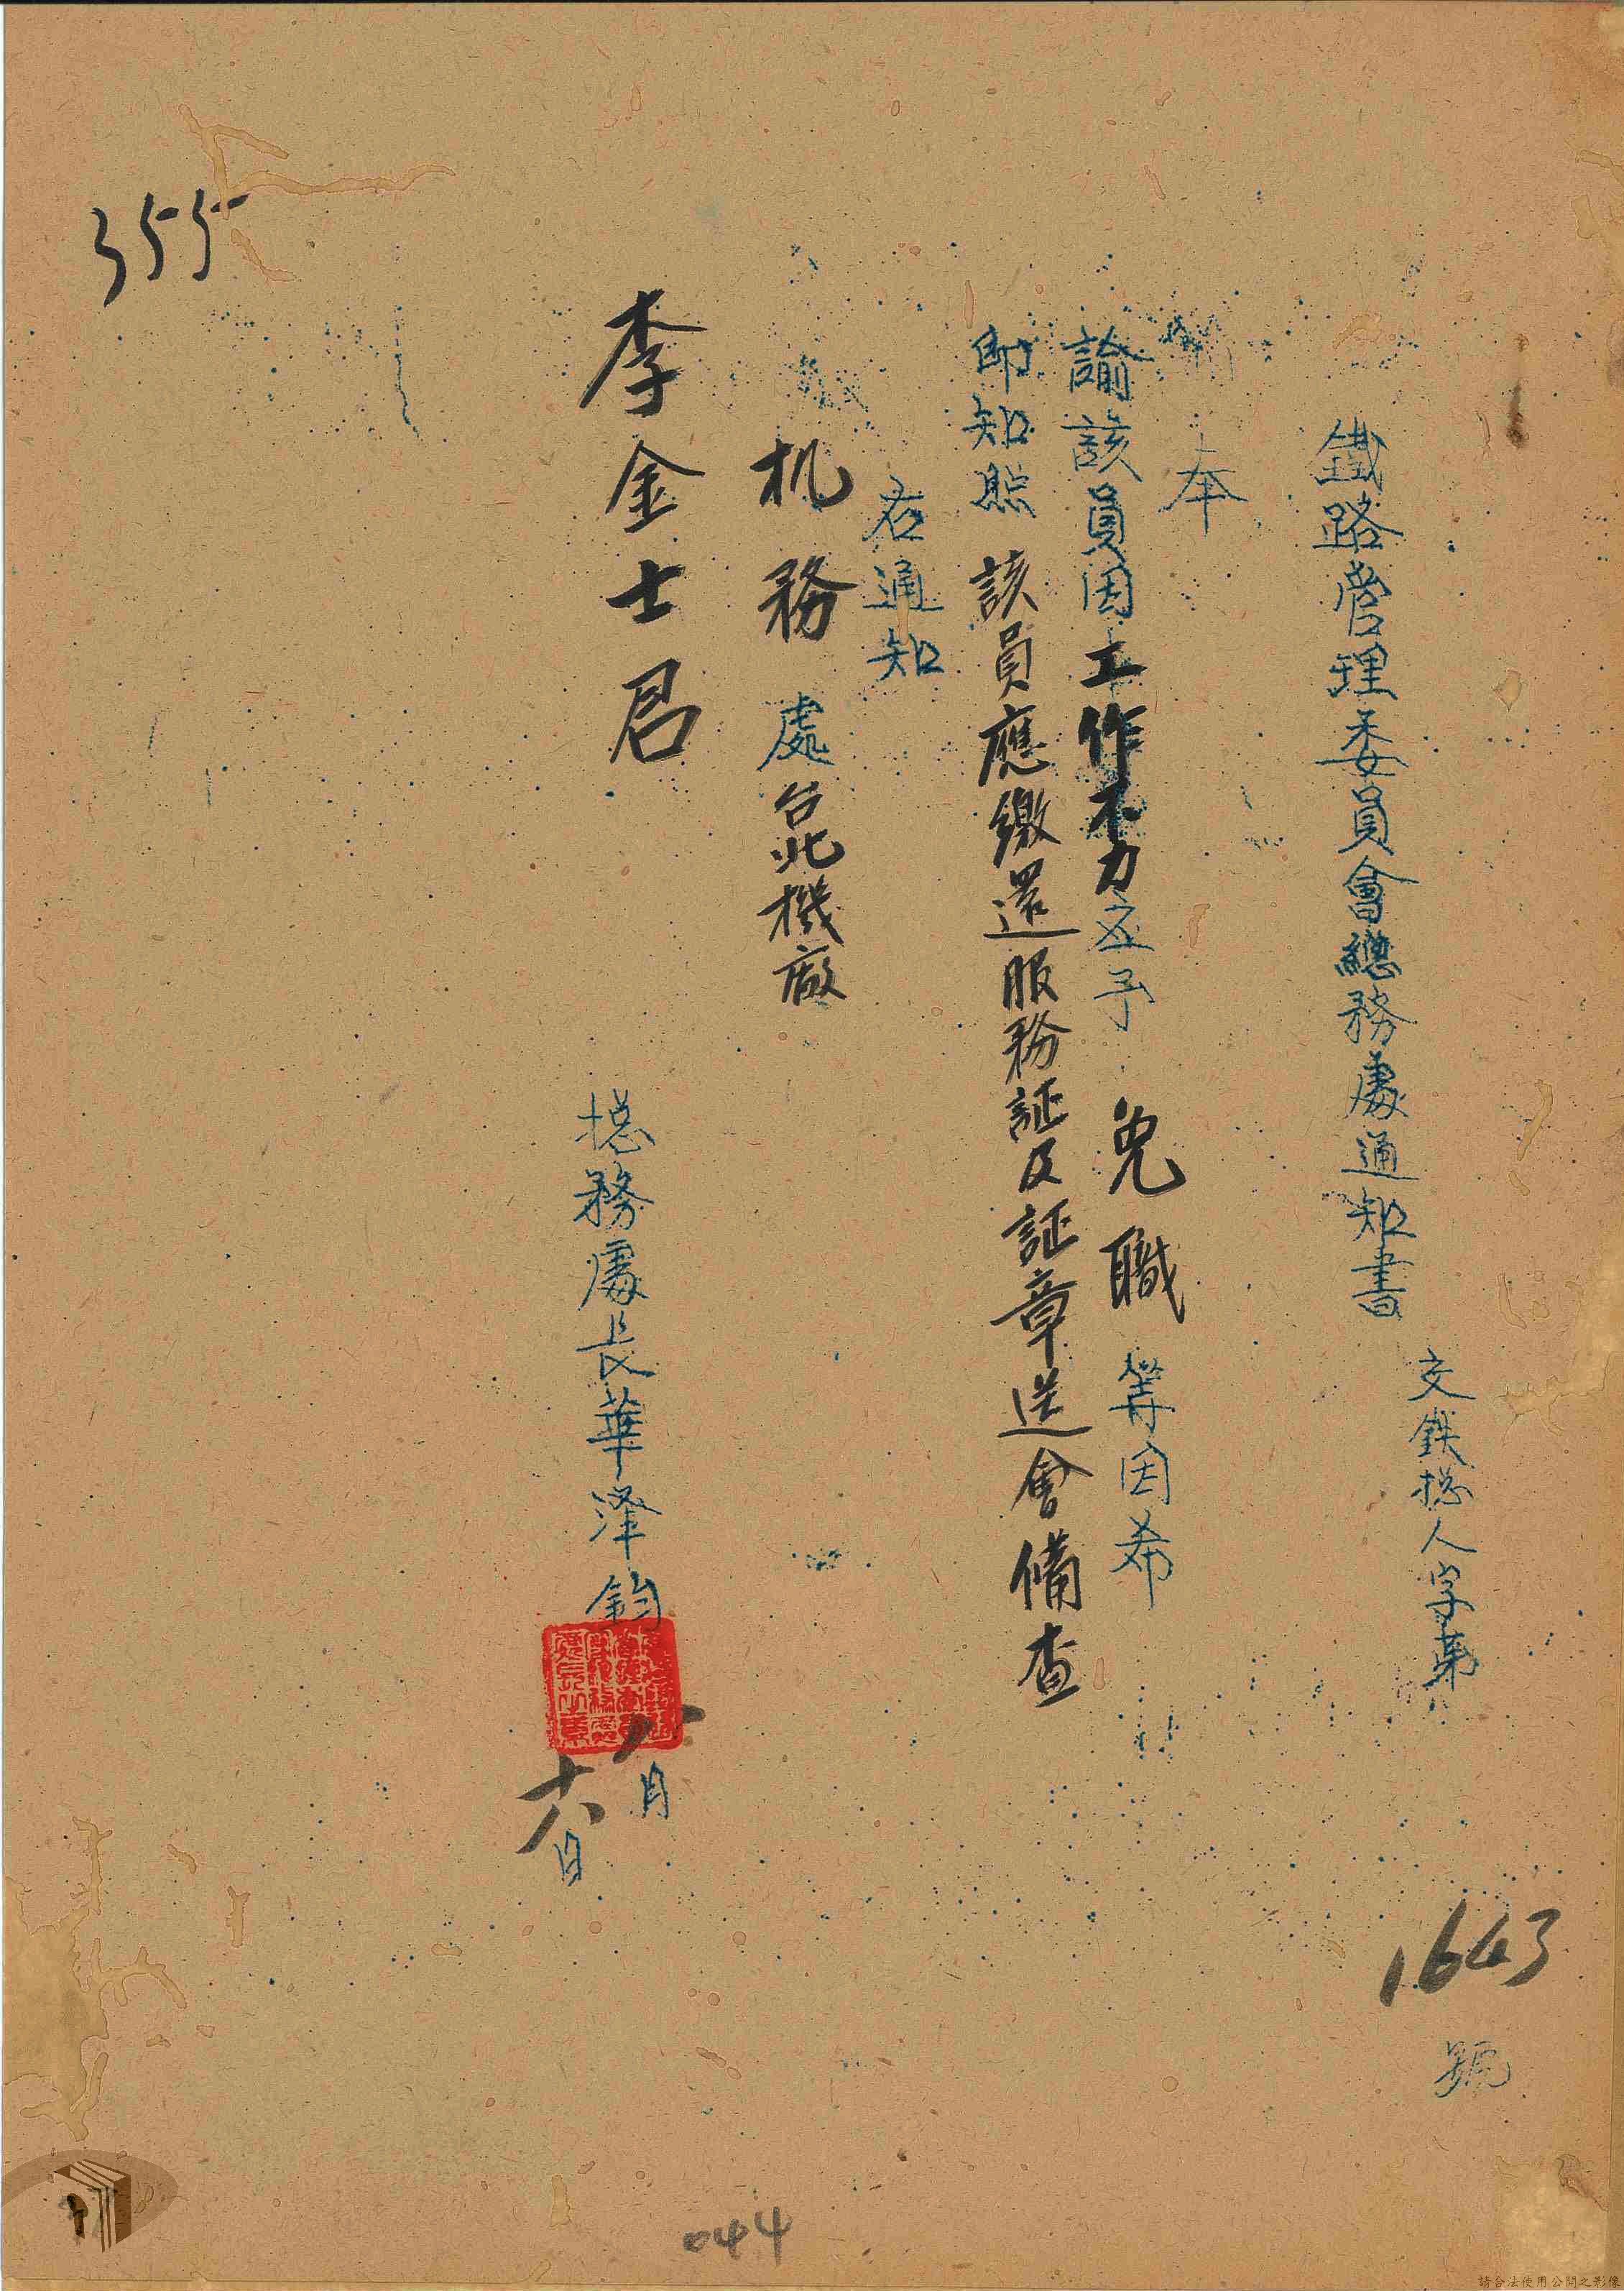 鐵路管理委員會總務處通知書
交鉄総人字第
1643
號
奉
諭該員因工作不力应予免職等因希
即知照該員應繳還服務証及証章送會備查
右通知
机務處台北機廠
李金士君
総務處長華澤鈞
月
十六日
355
044
請合法使用公開之影像